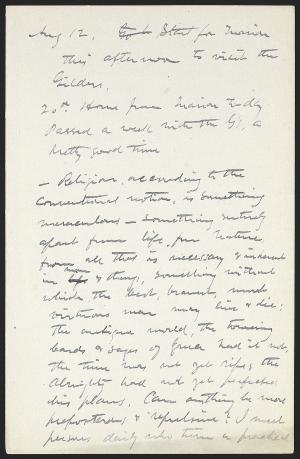 Aug 12. Start for Marion
this afternoon to visit the
Gilders.
20th Home from Marion to-day
Passed a week with the G's, a
pretty good time
— Religion, according to the
conventional notion, is something
miraculous — something entirely
apart from life, from nature,
from all that is necessary & inherent
in men & things, something without
which the best, bravest, most
virtuous man may live & die;
The antique world, the
bards & sages of Greece had it not,
the time was not yet ripe; the
Almighty had not yet perfected
his plans. Can anything be more
preposterous & repulsive? I meet
persons daily who turn a